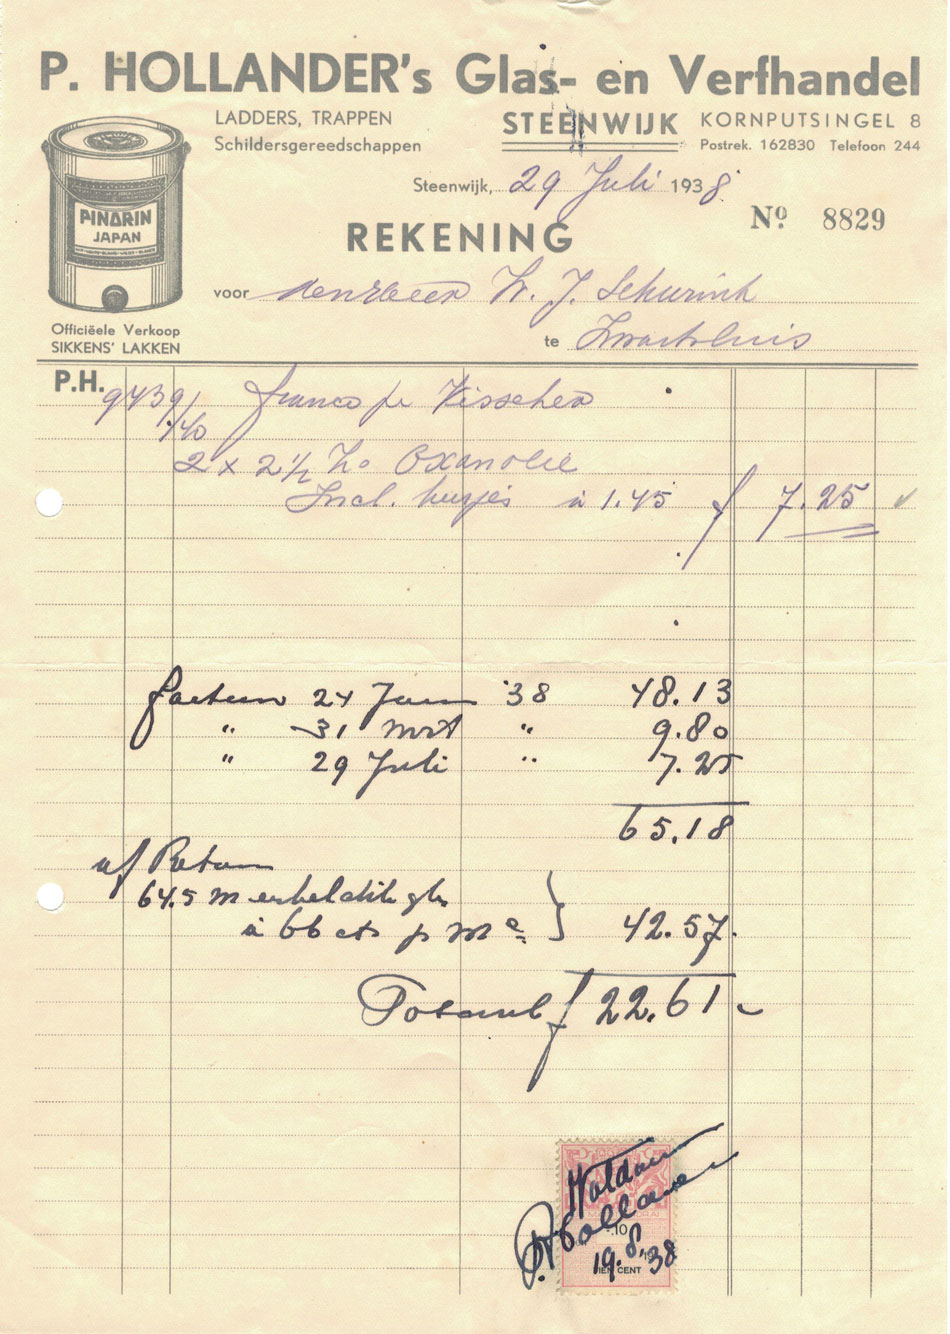 P. HOLLANDER's Glas- en Verfhandel
LADDERS, TRAPPEN
Schildersgereedschappen
STEENWIJK
KORNPUTSINGEL 8
Postrek. 162830 Telefoon 244
PINARIN
JAPAN
Officiëele Verkoop
SIKKENS' LAKKEN
Steenwijk, 29 Juli 1938.
Nº. 8829
REKENING
voor den Heer W. J. Schurink
te Zwartsluis
P.H.
9439/40 franco p. Visscher
2 x 2½ Lo Oxanolie
Incl. busjes à 1.45 f 7.25
factuur 24 Jan '38 48.13
" 31 Mrt " 9.80
" 29 Juli " 7.25
65.18
a/ Retour
64.5 M
à 66 cts p M² } 42.57.
Totaal f 22.61
Voldaan
P. Hollander
10
TIEN CENT
19.8.'38